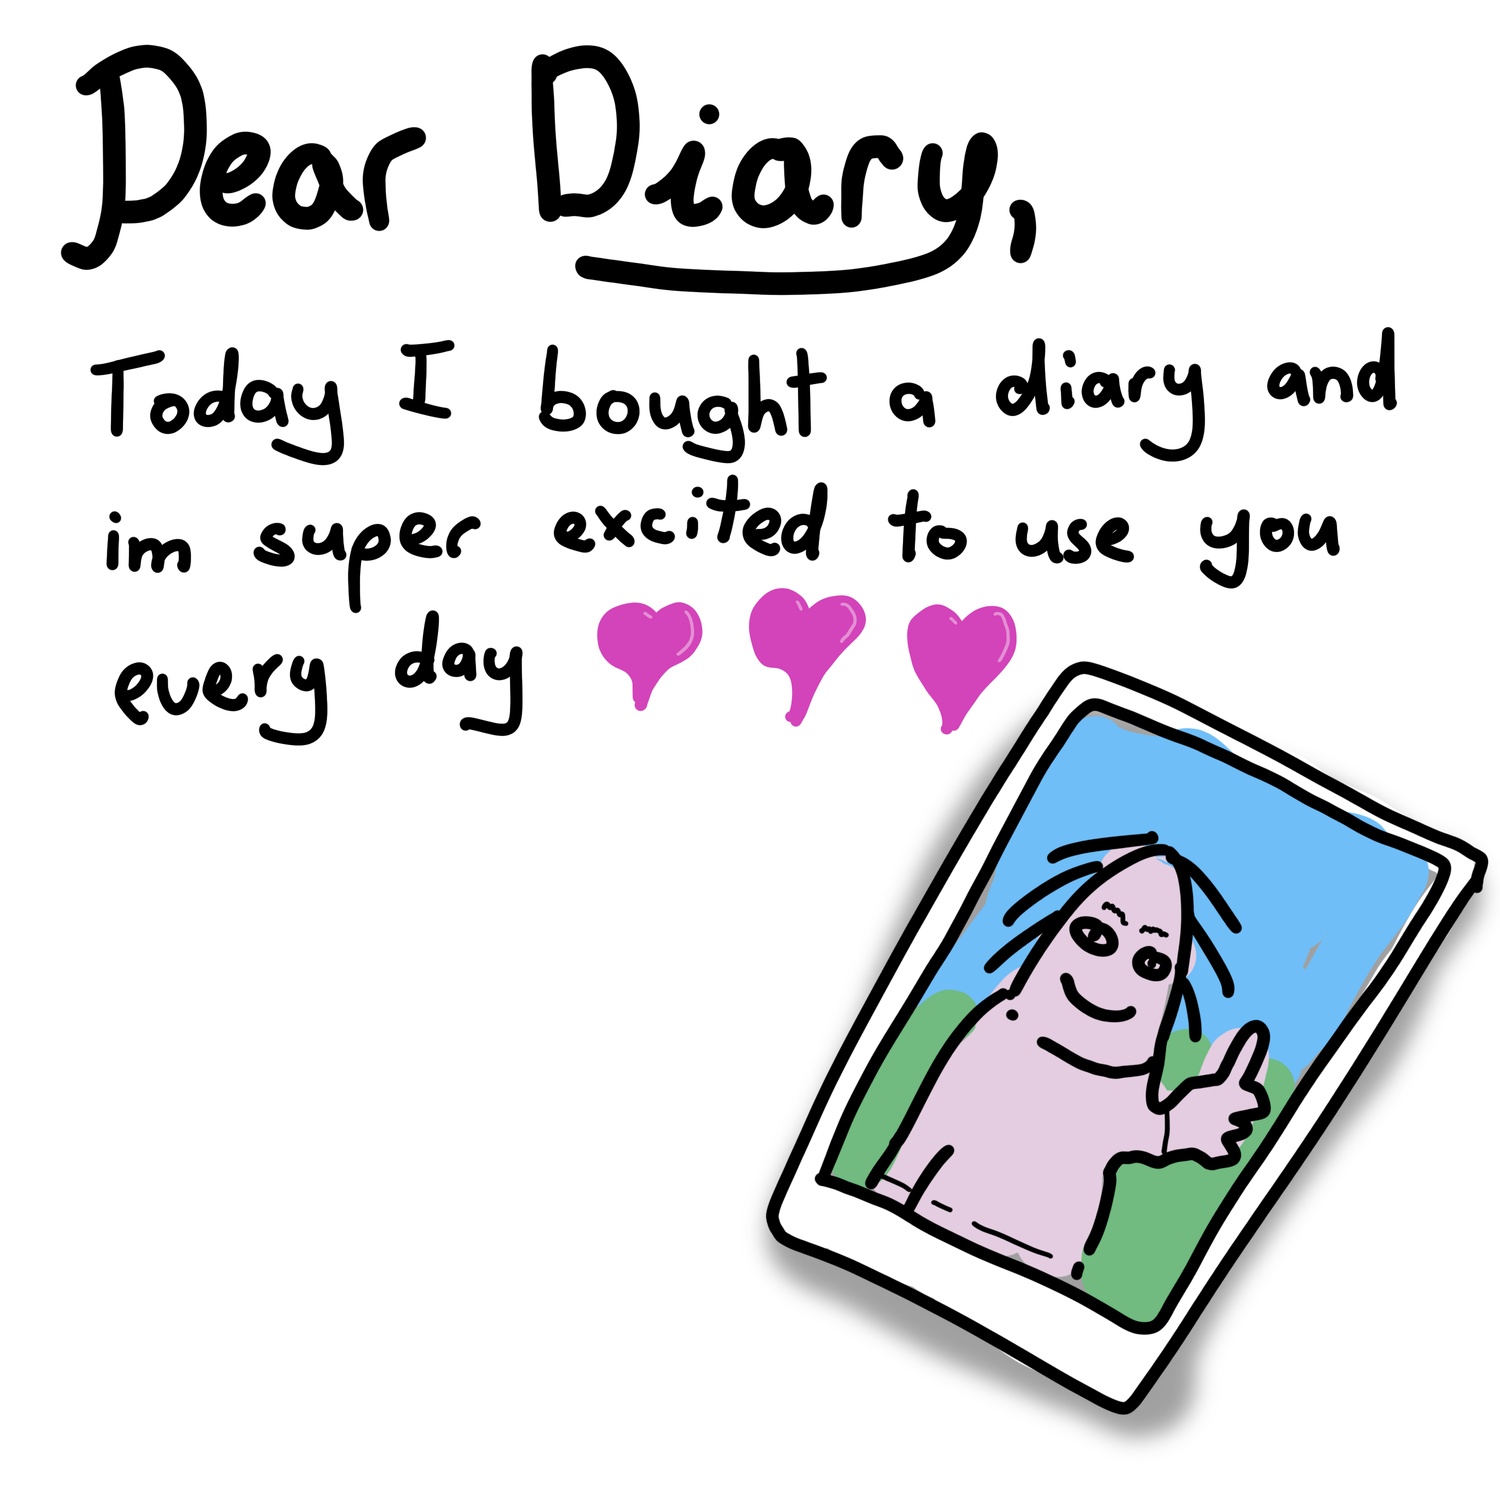 Dear Diary,
Today I bought a diary and
im super excited to use you
every day